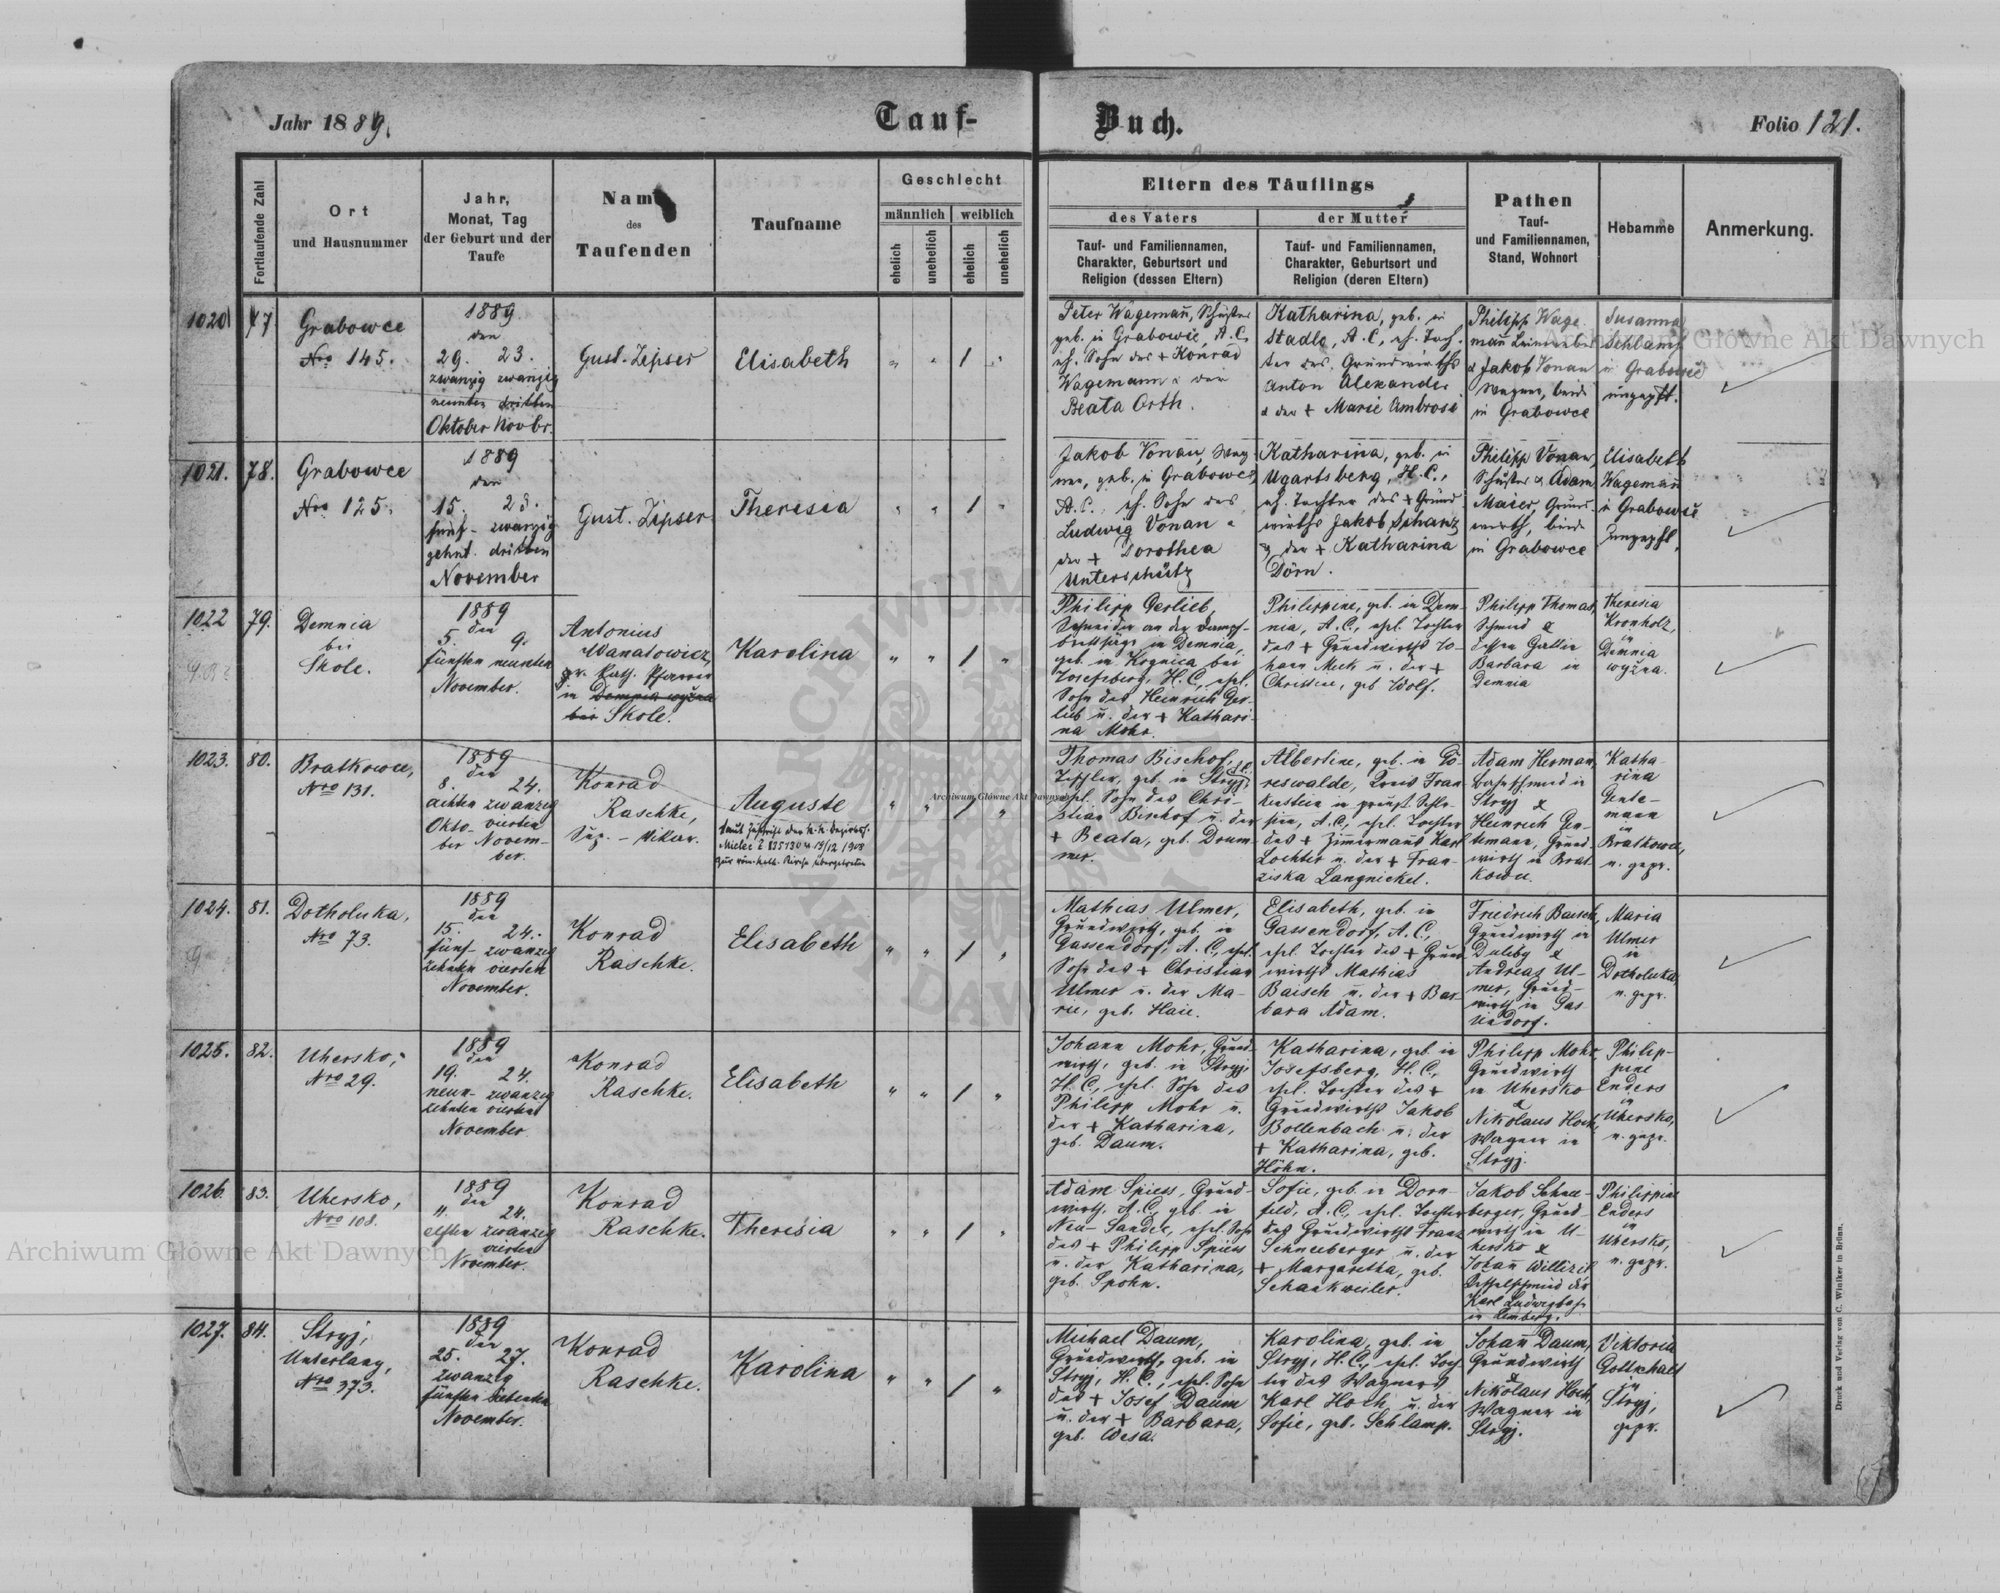 Jahr 1889.
Tauf-
Buch.
Folio 121.
Fortlaufende Zahl
Ort
und Hausnummer
Jahr,
Monat, Tag
der Geburt und der
Taufe
Name
des
Taufenden
Taufname
Geschlecht
männlich
weiblich
ehelich
unehelich
ehelich
unehelich
Eltern des Täuflings
des Vaters
der Mutter
Tauf- und Familiennamen,
Charakter, Geburtsort und
Religion (dessen Eltern)
Tauf- und Familiennamen,
Charakter, Geburtsort und
Religion (deren Eltern)
Pathen
Tauf-
und Familiennamen,
Stand, Wohnort
Hebamme
Anmerkung.
1020 77
Grabowce
Nro 145.
1889
den
29. 23.
zwanzig zwanzig
neunten dritten
Oktober Novbr.
Gust. Zipser
Elisabeth
Peter Wagemañ, Schuster
geb. in Grabowce, A.C.
eh. Sohn des + Konrad
Wagemann & der
Beata Orth.
Katharina, geb. in
Stadlo, A.C., eh. Toch-
ter des Grundwirths
Anton Alexander
& der + Marie Ambrosi
Philipp Wage-
mañ
& Jakob Vonau
Wagner, beide
in Grabowce
Susanna
Schlamp
in Grabowce
ungepft.
1021. 78.
Grabowce
Nro 125.
1889
den
15. 23.
fünf- zwanzig
zehnt. dritten
November
Gust. Zipser
Theresia
Jakob Vonau, Wag-
ner, geb. in Grabowce,
A.C., eh. Sohn des
Ludwig Vonau &
der + Dorothea
Unterschütz
Katharina, geb. in
Ugartsberg, H.C.,
eh. Tochter des + Grund-
wirths Jakob Schanz
& der + Katharina
Dörn.
Philipp Vonau,
Schuster & Adam
Maier, Grund-
wirth, beide
in Grabowce
Elisabeth
Wagemañ
in Grabowce
ungepft.
1022 79.
Demnia
bei
Skole.
1889
den
5. 9.
fünften neunten
November.
Antonius
Wanatowicz,
gr. kath. Pfarrer
in Demnia wyżna
bei Skole.
Karolina
Philipp Gerlieb,
Schneider an der Dampf-
brettsäge in Demnia,
geb. in Krynica bei
Josefsberg, H.C., ehel.
Sohn des Heinrich Ger-
lieb u. der + Kathari-
na Mohr.
Philippine, geb. in Dem-
nia, A.C., ehel. Tochter
des + Grundwirths Jo-
hann Meck u. der +
Christine, geb. Wolf.
Philipp Thomas,
Schmied &
dessen Gattin
Barbara in
Demnia
Theresia
Kronholz,
in
Demnia
wyżna.
1023. 80.
Bratkowce,
Nro 131.
1889
den
8. 24.
achten zwanzig
Okto- vierten
ber Novem-
ber.
Konrad
Raschke,
Sup. - Vikar.
Auguste
Laut Zuschrift der k.k. Bezirksh.
Mielec Z 835130 v. 19/12 1908
zur röm. kath. Kirche übergetreten
Thomas Bischof,
Tischler, geb. in Stryj,
ehel. Sohn des Chri-
stian Bischof u. der
+ Beata, geb. Drum-
mer.
Albertine, geb. in Gö-
reswalde, Kreis Fran-
kenstein in preuß. Schle-
sien, A.C., ehel. Tochter
des + Zimmermanns Karl
Lochter u. der + Fran-
ziska Langnickel.
Adam Herman,
Hufschmied in
Stryj &
Heinrich Gen-
temann, Grund-
wirth in Brat-
kowce.
Katha-
rina
Gente-
mann
in
Bratkowce,
u. gepr.
1024. 81.
Dotholuka,
Nro 73.
1889
den
15. 24.
fünf- zwanzig
zehnten vierten
November.
Konrad
Raschke.
Elisabeth
Mathias Ulmer,
Grundwirth, geb. in
Gassendorf, A.C., ehel.
Sohn des + Christian
Ulmer u. der Ma-
rie, geb. Haie.
Elisabeth, geb. in
Gassendorf, A.C.,
ehel. Tochter des + Grund-
wirths Mathias
Baisch u. der + Bar-
bara Adam.
Friedrich Baisch,
Grundwirth in
Duliby &
Andreas Ul-
mer, Grund-
wirth in Gas-
sendorf.
Maria
Ulmer
in
Dotholuka,
u. gepr.
1025. 82.
Uhersko,
Nro 29.
1889
den
19. 24.
neun- zwanzig
zehnten vierten
November
Konrad
Raschke.
Elisabeth
Johann Mohr, Grund-
wirth, geb. in Stryj,
H.C., ehel. Sohn des
Philipp Mohr u.
der + Katharina,
geb. Daum.
Katharina, geb. in
Josefsberg, H.C.,
ehel. Tochter des +
Grundwirths Jakob
Bollenbach u. der
+ Katharina, geb.
Höhn.
Philipp Mohr,
Grundwirth
in Uhersko
&
Nikolaus Hoch,
Wagner in
Stryj.
Philip-
pine
Enders
in
Uhersko,
u. gepr.
1026. 83.
Uhersko,
Nro 108.
1889
den
11. 24.
elften zwanzig
vierten
November.
Konrad
Raschke.
Theresia
Adam Spiess, Grund-
wirth, A.C., geb. in
Neu-Sandec, ehel. Sohn
des + Philipp Spiess
u. der Katharina,
geb. Spohn.
Sofie, geb. in Dorn-
feld, A.C., ehel. Tochter
des Grundwirths Franz
Schneeberger u. der
+ Margaretha, geb.
Schankweiler.
Jakob Schnee-
berger, Grund-
wirth in U-
hersko &
Johañ Willizil
Kesselschmied der
Karl Ludwigbahn
in Lemberg.
Philippine
Enders
in
Uhersko,
u. gepr.
1027. 84.
Stryj,
Unterlany,
Nro 373.
1889
den
25. 27.
zwanzig
fünften siebenten
November.
Konrad
Raschke.
Karolina
Michael Daum,
Grundwirth, geb. in
Stryj, H.C., ehel. Sohn
des + Josef Daum
u. der + Barbara,
geb. Wesa.
Karolina, geb. in
Stryj, H.C., ehel. Toch-
ter des Wagners
Karl Hoch u. der
Sofie, geb. Schlamp.
Johañ Daum,
Grundwirth
&
Nikolaus Hoch,
Wagner in
Stryj.
Viktoria
Gottschalk
in
Stryj,
gepr.
Druck und Verlag von C. Winiker in Brünn.
Archiwum Główne Akt Dawnych
Archiwum Główne Akt Dawnych
Archiwum Główne Akt Dawnych